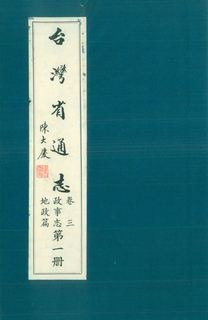 台灣省通志
陳大慶
卷三
政事志
地政篇
第一册